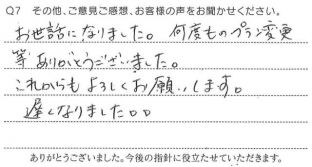 Q7 その他、ご意見ご感想、お客様の声をお聞かせください。
お世話になりました。何度ものプラン変更
等ありがとうございました。
これからもよろしくお願いします。
遅くなりました。。
ありがとうございました。今後の指針に役立たせていただきます。